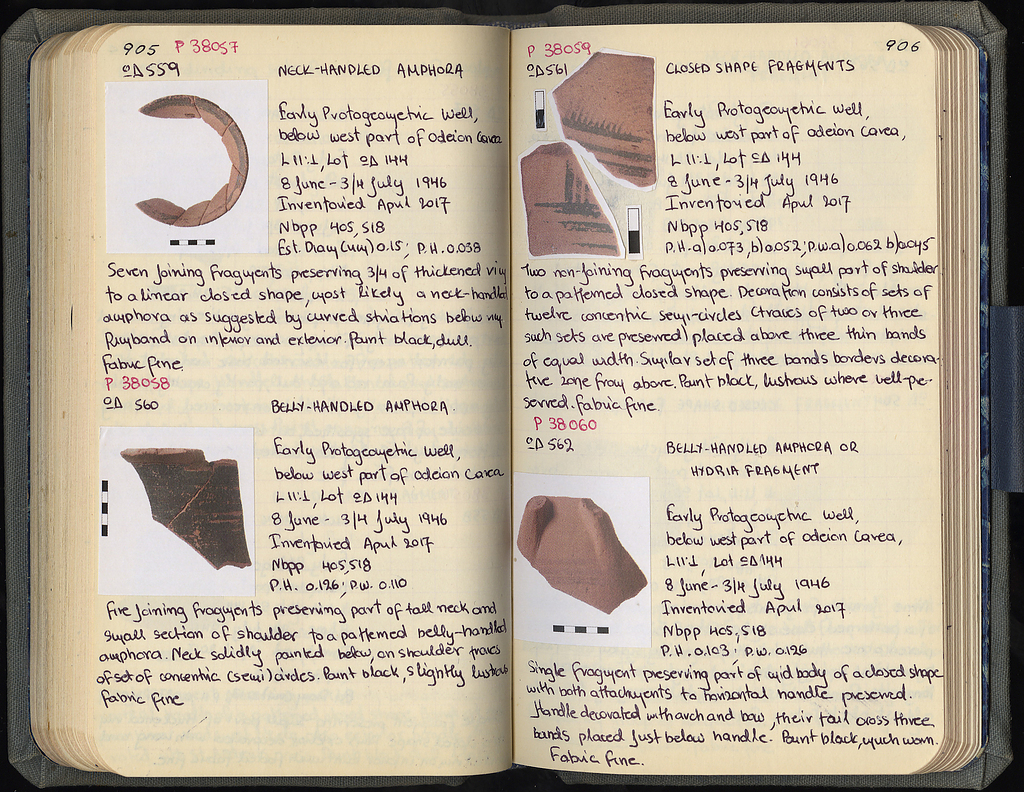 905 P 38057
ΩΔ 559
NECK-HANDLED AMPHORA
Early Protogeometric Well,
below west part of Odeion Cavea
L 11:1, Lot ΩΔ 144
8 June - 3/4 July 1946
Inventoried April 2017
Nbpp 405, 518
Est. Diam (mm) 0.15; P.H. 0.038
Seven joining fragments preserving 3/4 of thickened rim
to a linear closed shape, most likely a neck-handled
amphora as suggested by curved striations below rim.
Rimband on interior and exterior. Paint black, dull.
Fabric fine.
P 38058
ΩΔ 560
BELLY-HANDLED AMPHORA.
Early Protogeometric Well,
below west part of Odeion Cavea
L 11:1, Lot ΩΔ 144
8 June - 3/4 July 1946
Inventoried April 2017
Nbpp 405, 518
P.H. 0.126; P.W. 0.110
Five joining fragments preserving part of tall neck and
small section of shoulder to a patterned belly-handled
amphora. Neck solidly painted below, on shoulder traces
of set of concentric (semi)circles. Paint black, slightly lustrous
Fabric fine
P 38059
906
ΩΔ 561
CLOSED SHAPE FRAGMENTS
Early Protogeometric Well,
below west part of Odeion Cavea,
L 11:1, Lot ΩΔ 144
8 June - 3/4 July 1946
Inventoried April 2017
Nbpp 405, 518
P.H. a) 0.073, b) 0.052; P.W. a) 0.062 b) 0.045
Two non-joining fragments preserving small part of shoulder
to a patterned closed shape. Decoration consists of sets of
twelve concentric semi-circles (traces of two or three
such sets are preserved) placed above three thin bands
of equal width. Similar set of three bands borders decora-
tive zone from above. Paint black, lustrous where well-pre-
served. Fabric fine.
P 38060
ΩΔ 562
BELLY-HANDLED AMPHORA OR
HYDRIA FRAGMENT
Early Protogeometric Well,
below west part of Odeion Cavea,
L 11:1, Lot ΩΔ 144
8 June - 3/4 July 1946
Inventoried April 2017
Nbpp 405, 518
P.H. 0.103; P.W. 0.126
Single fragment preserving part of mid body of a closed shape
with both attachments to horizontal handle preserved.
Handle decorated with arch and bow, their tail cross three
bands placed just below handle. Paint black, much worn.
Fabric fine.